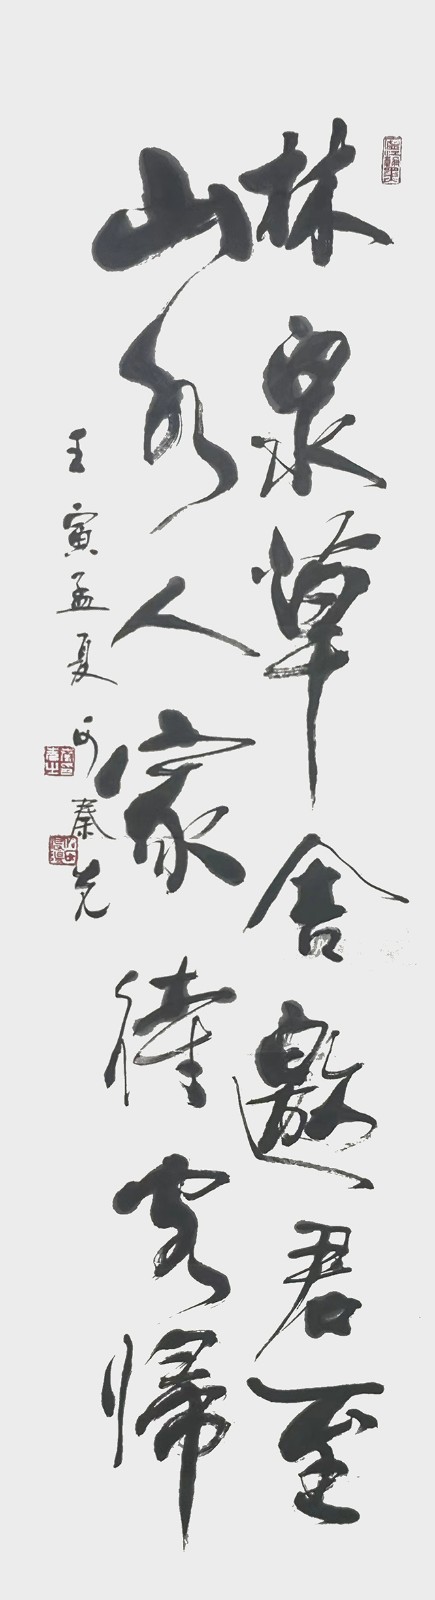 林泉草舍邀君至
山水人家待客歸
壬寅孟夏 秦先